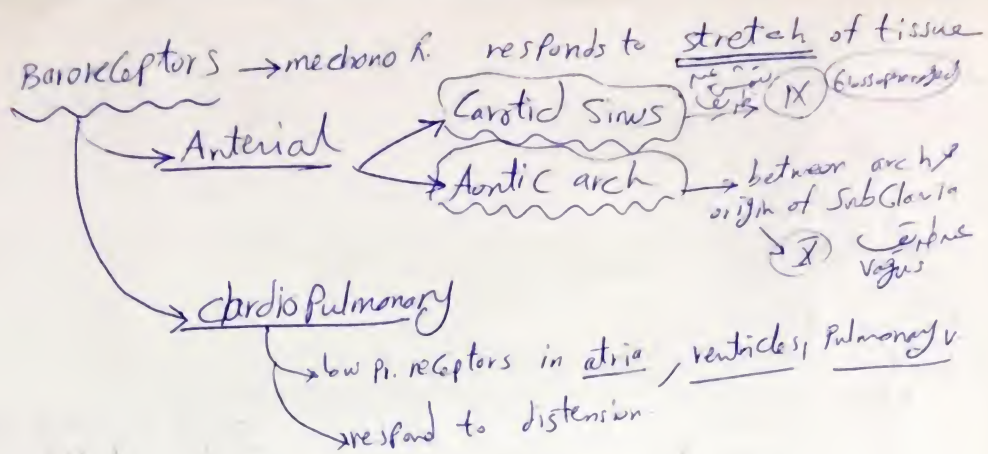 Baroreceptors → mechano r. responds to stretch of tissue
Arterial
Carotid Sinus → IX Glossopharyngeal
Aortic arch → between arch &
origin of SubClavia
X
Vagus
CardioPulmonary
low pr. receptors in atria, ventricles, Pulmonary v.
respond to distension